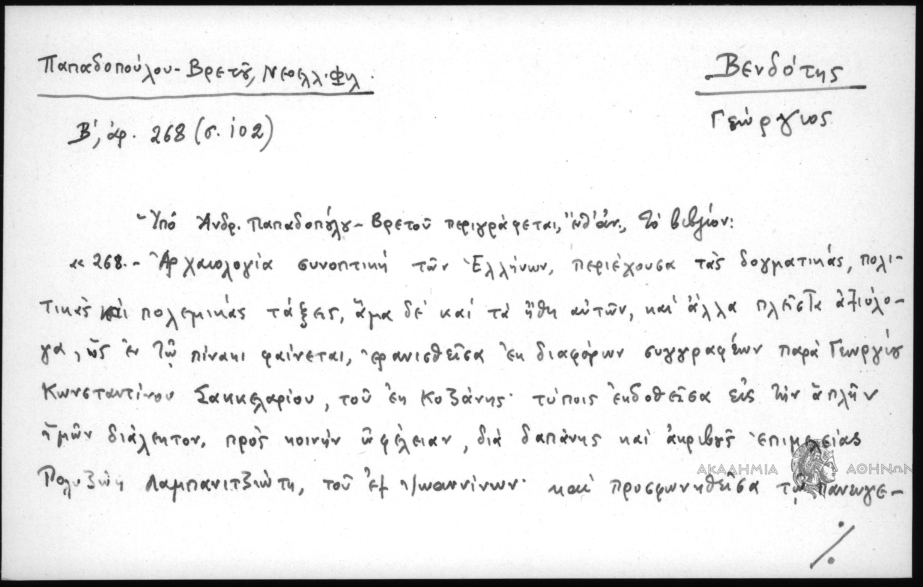 Παπαδοπούλου-Βρετοῦ, Νεοελλ. Φιλ.
Βενδότης
Γεώργιος
Β', ἀρ. 268 (σ. 102)
Ὑπό Ἀνδρ. Παπαδοπούλου-Βρετοῦ περιγράφεται, ἔνθ' ἀν., τό βιβλίον:
«268.- Ἀρχαιολογία συνοπτική τῶν Ἑλλήνων, περιέχουσα τάς δογματικάς, πολι-
τικάς καί πολεμικάς τάξεις, ἅμα δέ καί τά ἤθη αὐτῶν, καί ἄλλα πλεῖστα ἀξιόλο-
γα, ὡς ἐν τῷ πίνακι φαίνεται, ἐρανισθεῖσα ἐκ διαφόρων συγγραφέων παρά Γεωργίου
Κωνσταντίνου Σακκελαρίου, τοῦ ἐκ Κοζάνης· τύποις ἐκδοθεῖσα εἰς τήν ἁπλῆν
ἡμῶν διάλεκτον, πρός κοινήν ὠφέλειαν, διά δαπάνης καί ἀκριβοῦς ἐπιμελείας
Πολυζώη Λαμπανιτζιώτη, τοῦ ἐξ Ἰωαννίνων· καί προσφωνηθεῖσα τῷ πανευγε-
ΑΚΑΔΗΜΙΑ ΑΘΗΝΩΝ
./.